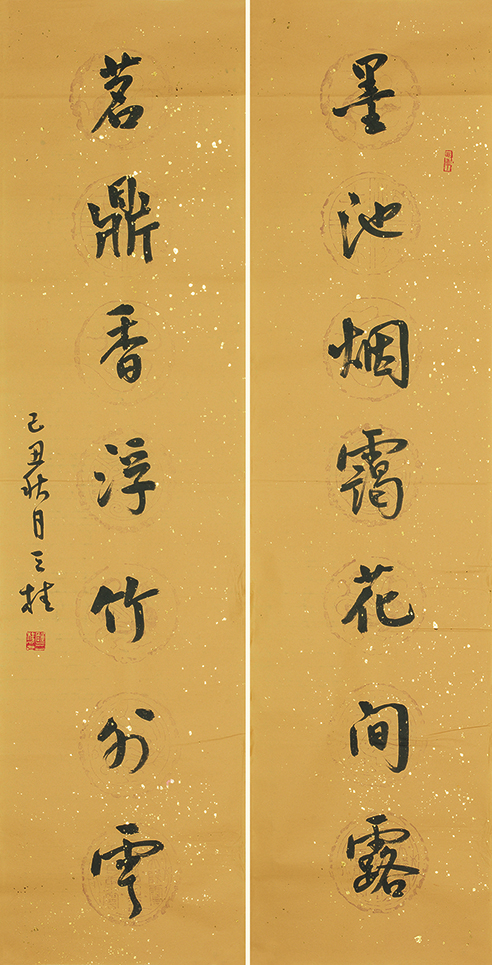 墨池烟霭花间露
茗鼎香浮竹外雲
己丑秋月三桂